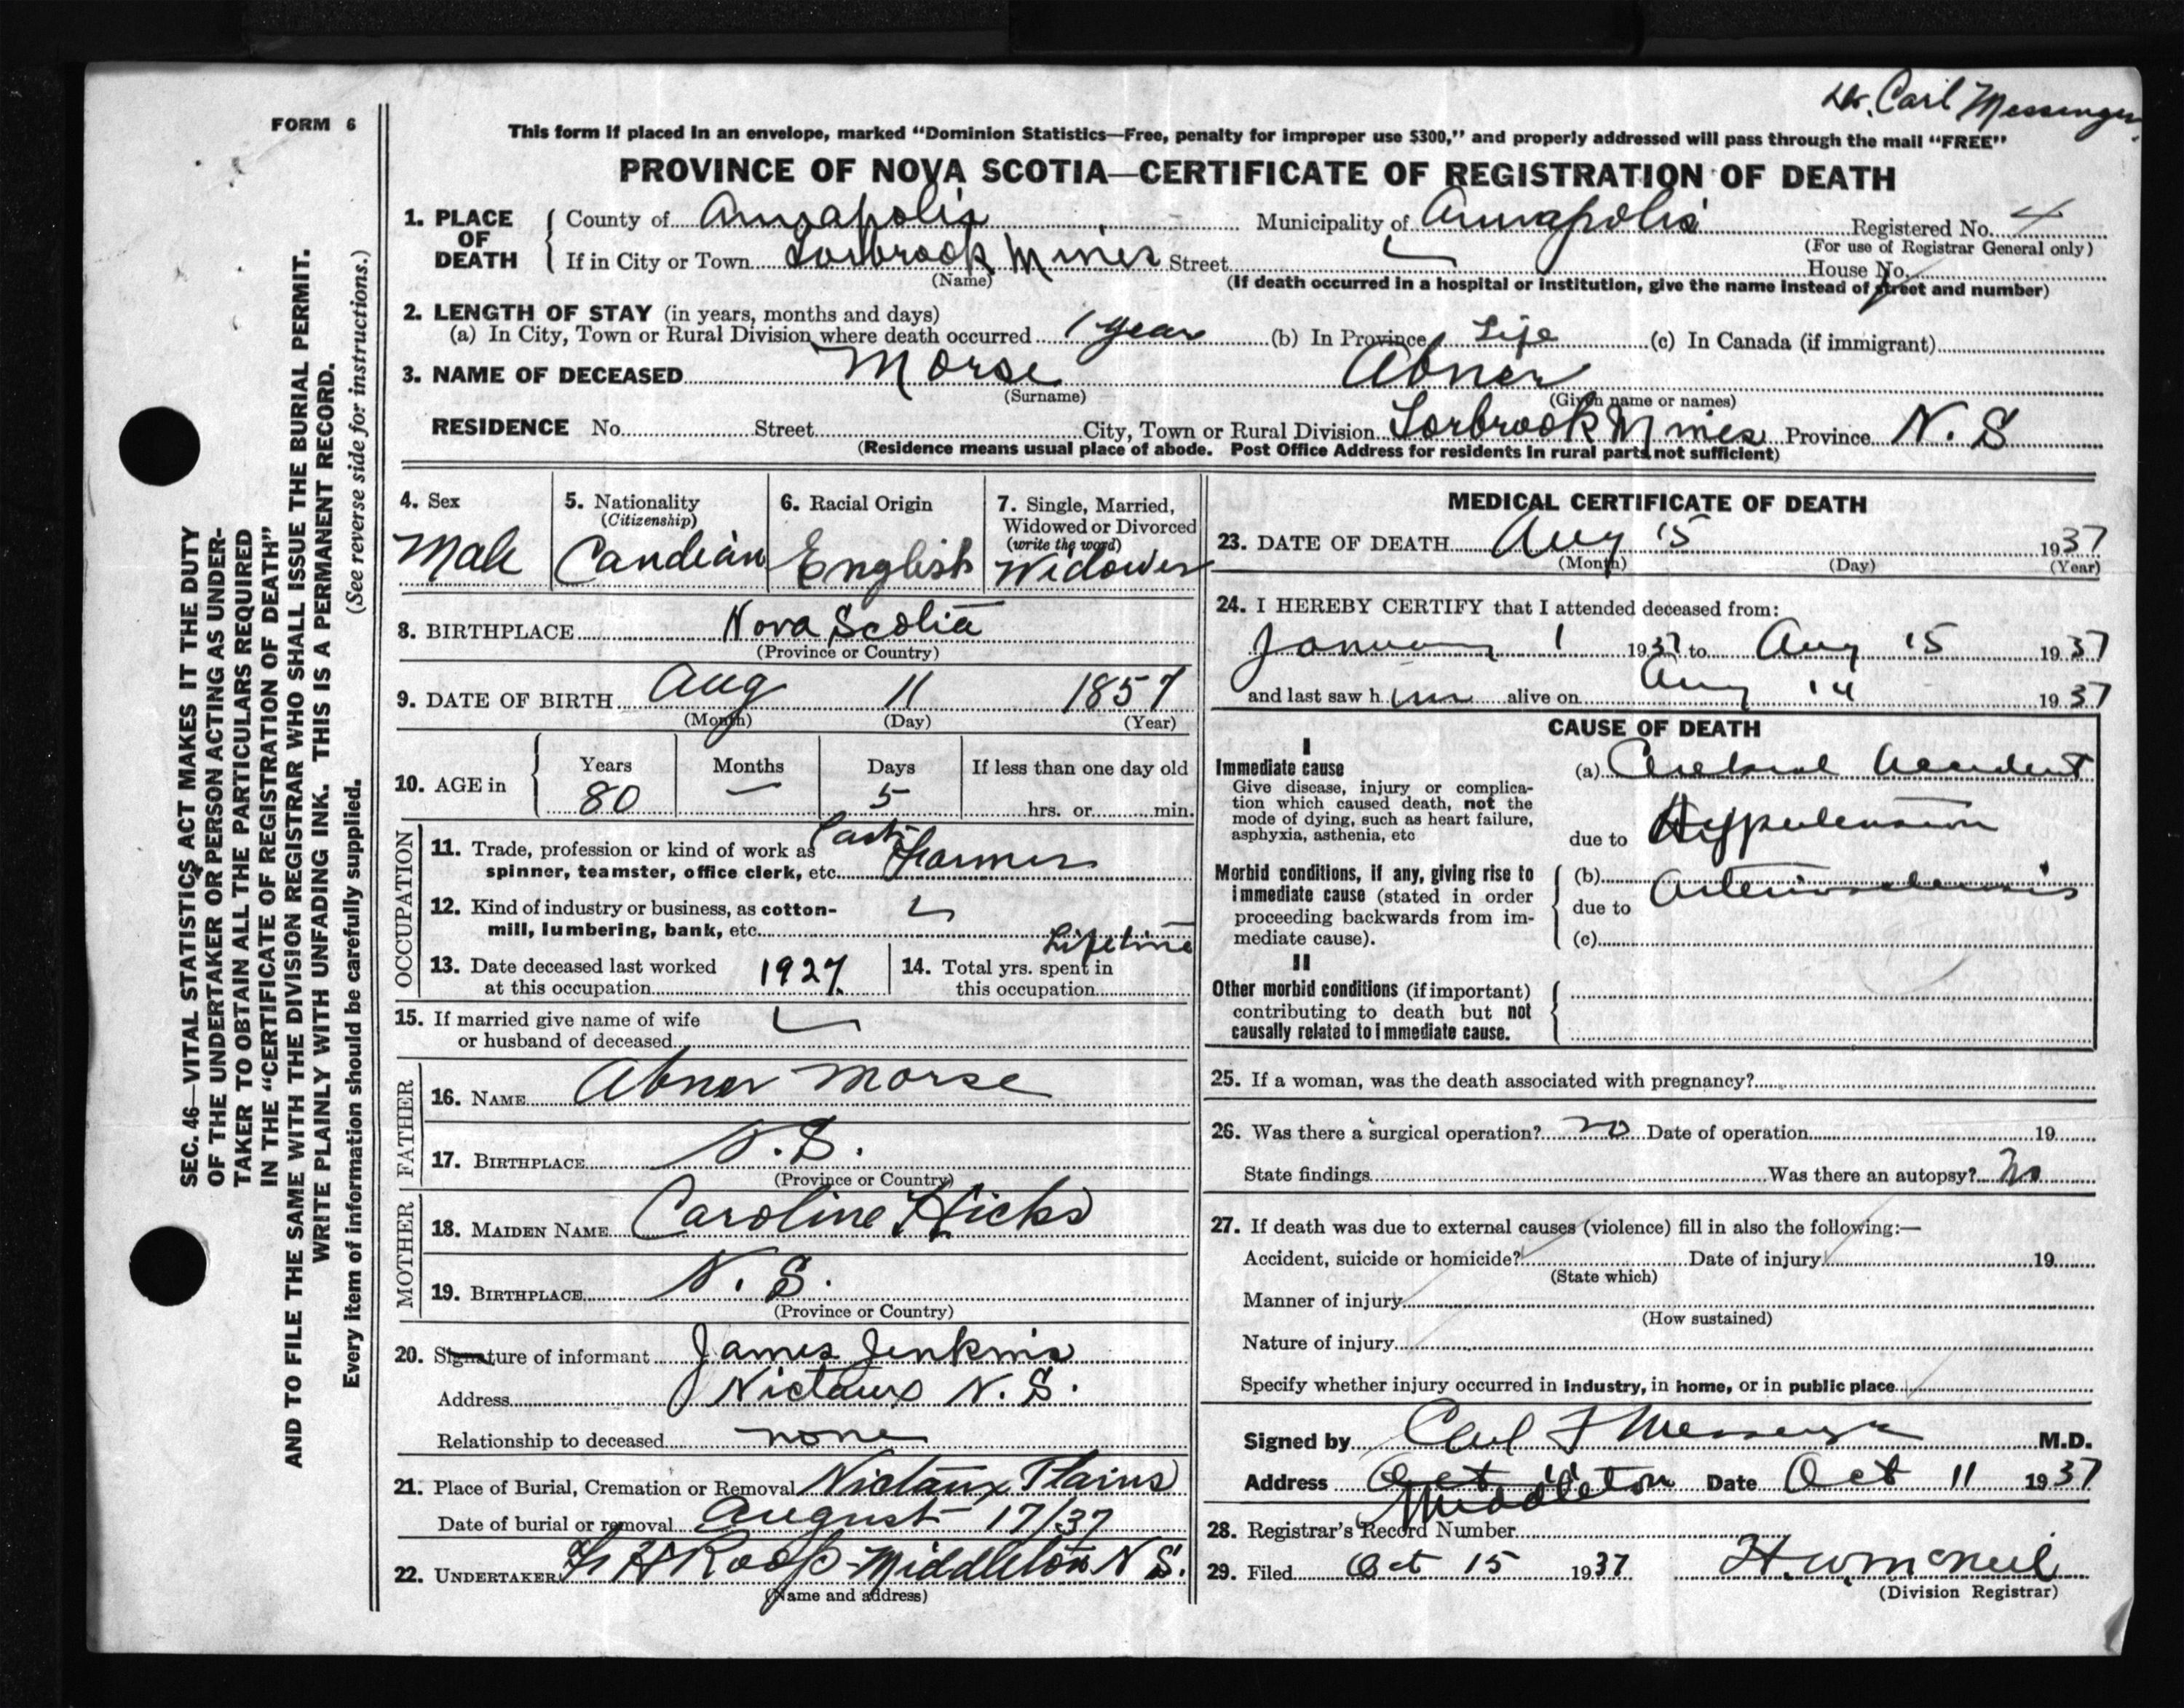 Dr. Carl Messenger.
FORM 6
This form if placed in an envelope, marked “Dominion Statistics—Free, penalty for improper use $300,” and properly addressed will pass through the mail “FREE”
PROVINCE OF NOVA SCOTIA—CERTIFICATE OF REGISTRATION OF DEATH
1. PLACE OF DEATH
County of Annapolis Municipality of Annapolis Registered No. 4
(For use of Registrar General only)
If in City or Town Torbrook Mines Street House No.
(Name)
(If death occurred in a hospital or institution, give the name instead of street and number)
2. LENGTH OF STAY (in years, months and days)
(a) In City, Town or Rural Division where death occurred 1 year (b) In Province Life (c) In Canada (if immigrant)
3. NAME OF DECEASED Morse Abner
(Surname) (Given name or names)
RESIDENCE No. Street City, Town or Rural Division Torbrook Mines Province N. S
(Residence means usual place of abode. Post Office Address for residents in rural parts not sufficient)
4. Sex
Male
5. Nationality
(Citizenship)
Candian
6. Racial Origin
English
7. Single, Married,
Widowed or Divorced
(write the word)
Widower
8. BIRTHPLACE Nova Scotia
(Province or Country)
9. DATE OF BIRTH Aug 11 1857
(Month) (Day) (Year)
10. AGE in
Years Months Days If less than one day old
80 — 5 hrs. or min.
OCCUPATION
11. Trade, profession or kind of work as
spinner, teamster, office clerk, etc. Farmer
12. Kind of industry or business, as cotton-
mill, lumbering, bank, etc.
13. Date deceased last worked
at this occupation 1927
14. Total yrs. spent in
this occupation Lifetime
15. If married give name of wife
or husband of deceased
FATHER
16. NAME Abner Morse
17. BIRTHPLACE N.S.
(Province or Country)
MOTHER
18. MAIDEN NAME Caroline Hicks
19. BIRTHPLACE N. S.
(Province or Country)
20. Signature of informant James Jenkins
Address Nictaux N. S.
Relationship to deceased none
21. Place of Burial, Cremation or Removal Nictaux Plains
Date of burial or removal August 17/37
22. UNDERTAKER H Roop - Middleton N S.
(Name and address)
MEDICAL CERTIFICATE OF DEATH
23. DATE OF DEATH Aug 15 1937
(Month) (Day) (Year)
24. I HEREBY CERTIFY that I attended deceased from:
January 1 1937 to Aug 15 1937
and last saw h im alive on Aug 14 1937
CAUSE OF DEATH
I
Immediate cause
Give disease, injury or complica-
tion which caused death, not the
mode of dying, such as heart failure,
asphyxia, asthenia, etc
(a) Cerebral Accident
due to Hypertension
Morbid conditions, if any, giving rise to
immediate cause (stated in order
proceeding backwards from im-
mediate cause).
(b) Arteriosclerosis
due to
(c)
II
Other morbid conditions (if important)
contributing to death but not
causally related to immediate cause.
25. If a woman, was the death associated with pregnancy?
26. Was there a surgical operation? no Date of operation 19
State findings Was there an autopsy? No
27. If death was due to external causes (violence) fill in also the following:—
Accident, suicide or homicide? Date of injury 19
(State which)
Manner of injury
(How sustained)
Nature of injury
Specify whether injury occurred in industry, in home, or in public place
Signed by Carl F Messenger M.D.
Address Oct 11 Middleton Date Oct 11 1937
28. Registrar's Record Number
29. Filed Oct 15 1937 H. W. McNeil
(Division Registrar)
SEC. 46—VITAL STATISTICS ACT MAKES IT THE DUTY
OF THE UNDERTAKER OR PERSON ACTING AS UNDER-
TAKER TO OBTAIN ALL THE PARTICULARS REQUIRED
IN THE “CERTIFICATE OF REGISTRATION OF DEATH”
AND TO FILE THE SAME WITH THE DIVISION REGISTRAR WHO SHALL ISSUE THE BURIAL PERMIT.
WRITE PLAINLY WITH UNFADING INK. THIS IS A PERMANENT RECORD.
Every item of information should be carefully supplied. (See reverse side for instructions.)